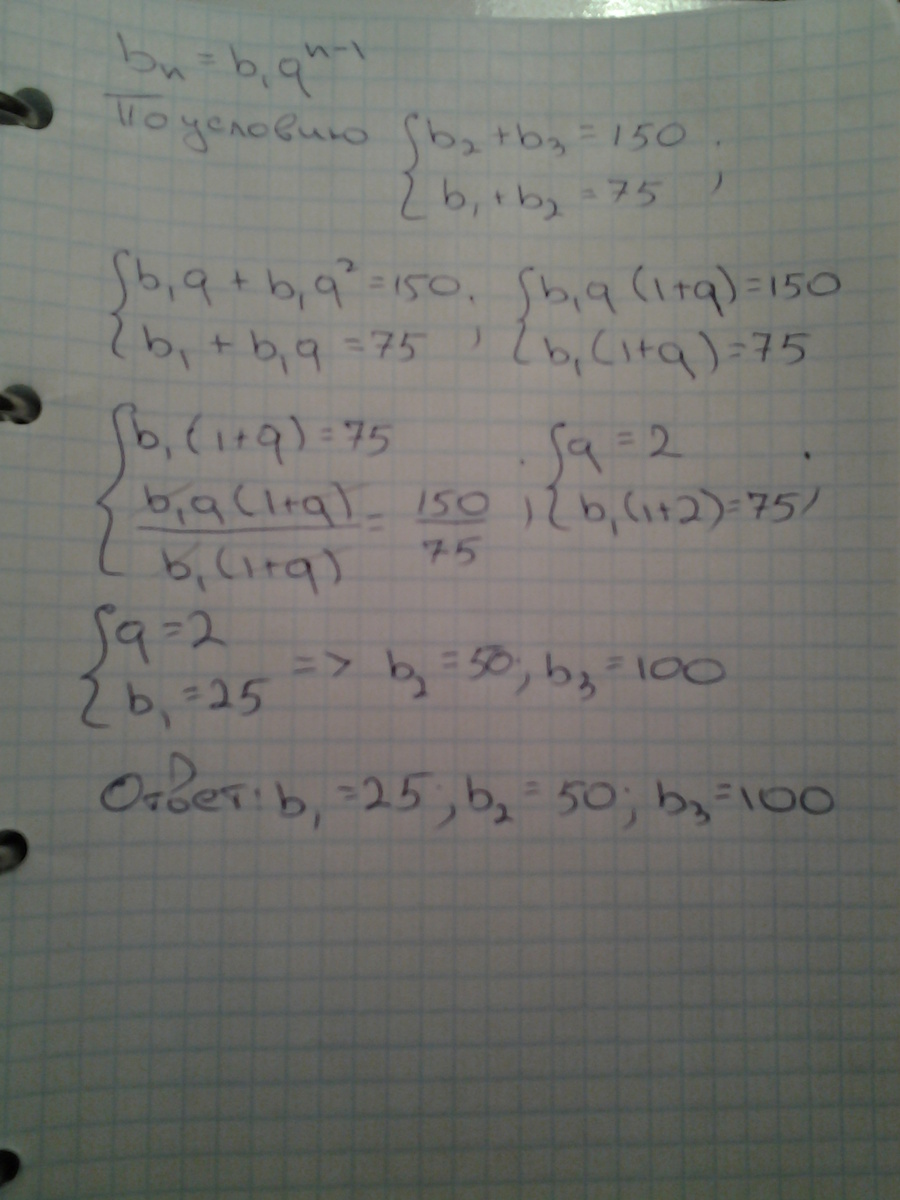 bₙ = b₁qⁿ⁻¹
По условию { b₂ + b₃ = 150 ;
b₁ + b₂ = 75
{ b₁q + b₁q² = 150 ; { b₁q (1+q) = 150
b₁ + b₁q = 75 b₁(1+q) = 75
{ b₁(1+q) = 75 ; { q = 2 ;
b₁q(1+q) / b₁(1+q) = 150/75 b₁(1+2) = 75
{ q = 2
b₁ = 25 => b₂ = 50; b₃ = 100
Ответ: b₁ = 25; b₂ = 50; b₃ = 100